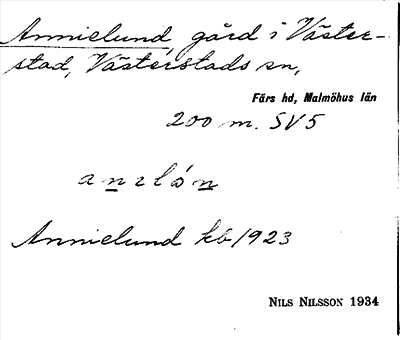 Annielund, gård i Väster-
stad, Västerstads sn,
Färs hd, Malmöhus län
200 m. SV5
Annielund kb/923
NILS NILSSON 1934